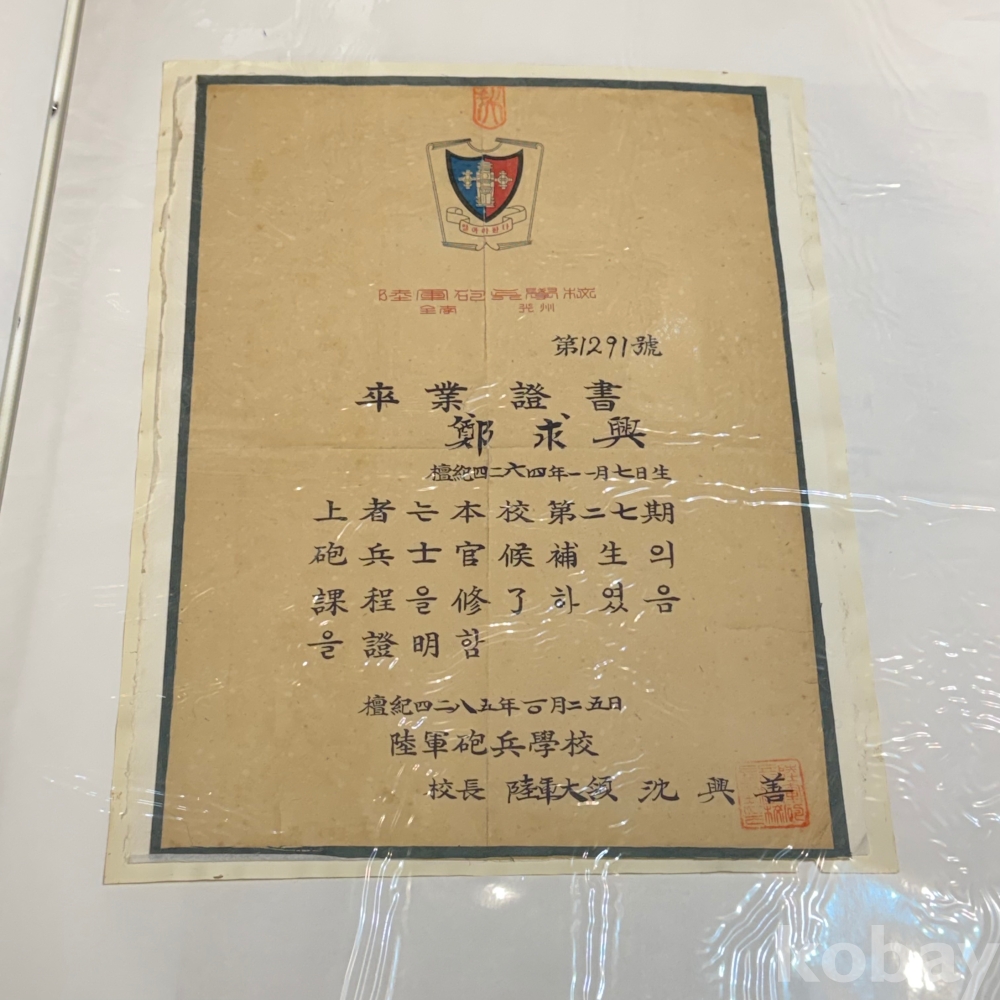 陸軍砲兵學校
全南 光州
第1291號
卒業證書
鄭求興
檀紀四二六四年一一月七日生
上者는本校第二七期
砲兵士官候補生의
課程을修了하였음
을證明함
檀紀四二八五年六月二五日
陸軍砲兵學校
校長 陸軍大領 沈興善
kobay